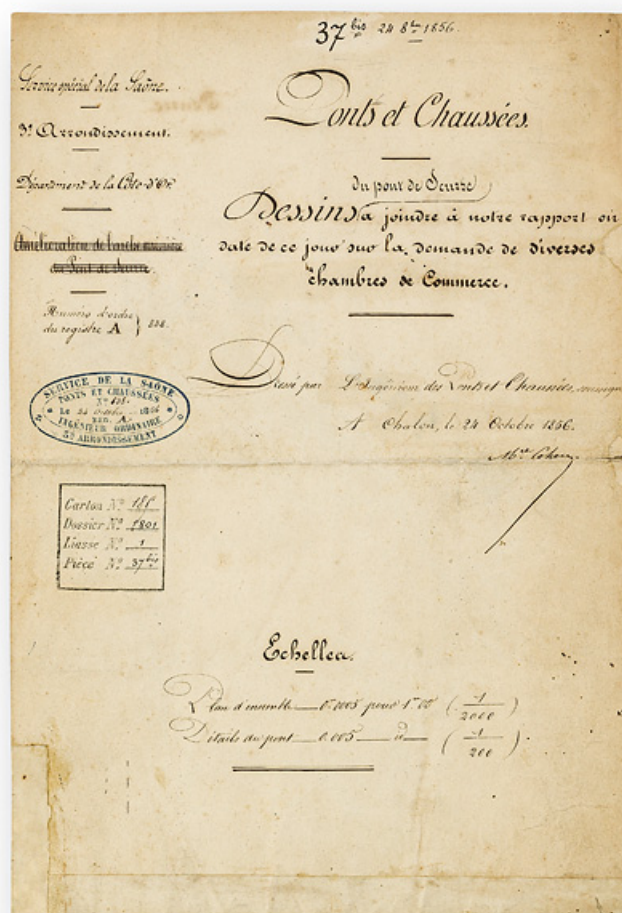 37 bis 24 8bre 1856.
Service spécial de la Saône.
3e Arrondissement.
Département de la Côte-d'Or.
Amélioration de l'arche marinière
du Pont de Seurre.
Numéro d'ordre
du registre A
SERVICE DE LA SAONE
PONTS ET CHAUSSÉES
Le 24 Octobre 1856
REG. A.
INGÉNIEUR ORDINAIRE
3e ARRONDISSEMENT
Carton No 181
Dossier No 1801
Liasse No 1
Pièce No 37 bis
Ponts et Chaussées.
du pont de Seurre
Dessins à joindre à notre rapport en
date de ce jour sur la demande de diverses
chambres de Commerce.
Dressé par L'Ingénieur des Ponts et Chaussées, soussigné
A Chalon, le 24 Octobre 1856.
Echelles.
Plan d'ensemble 0.0005 pour 1.00 (1/2000)
Détails du pont 0.005 id (1/200)